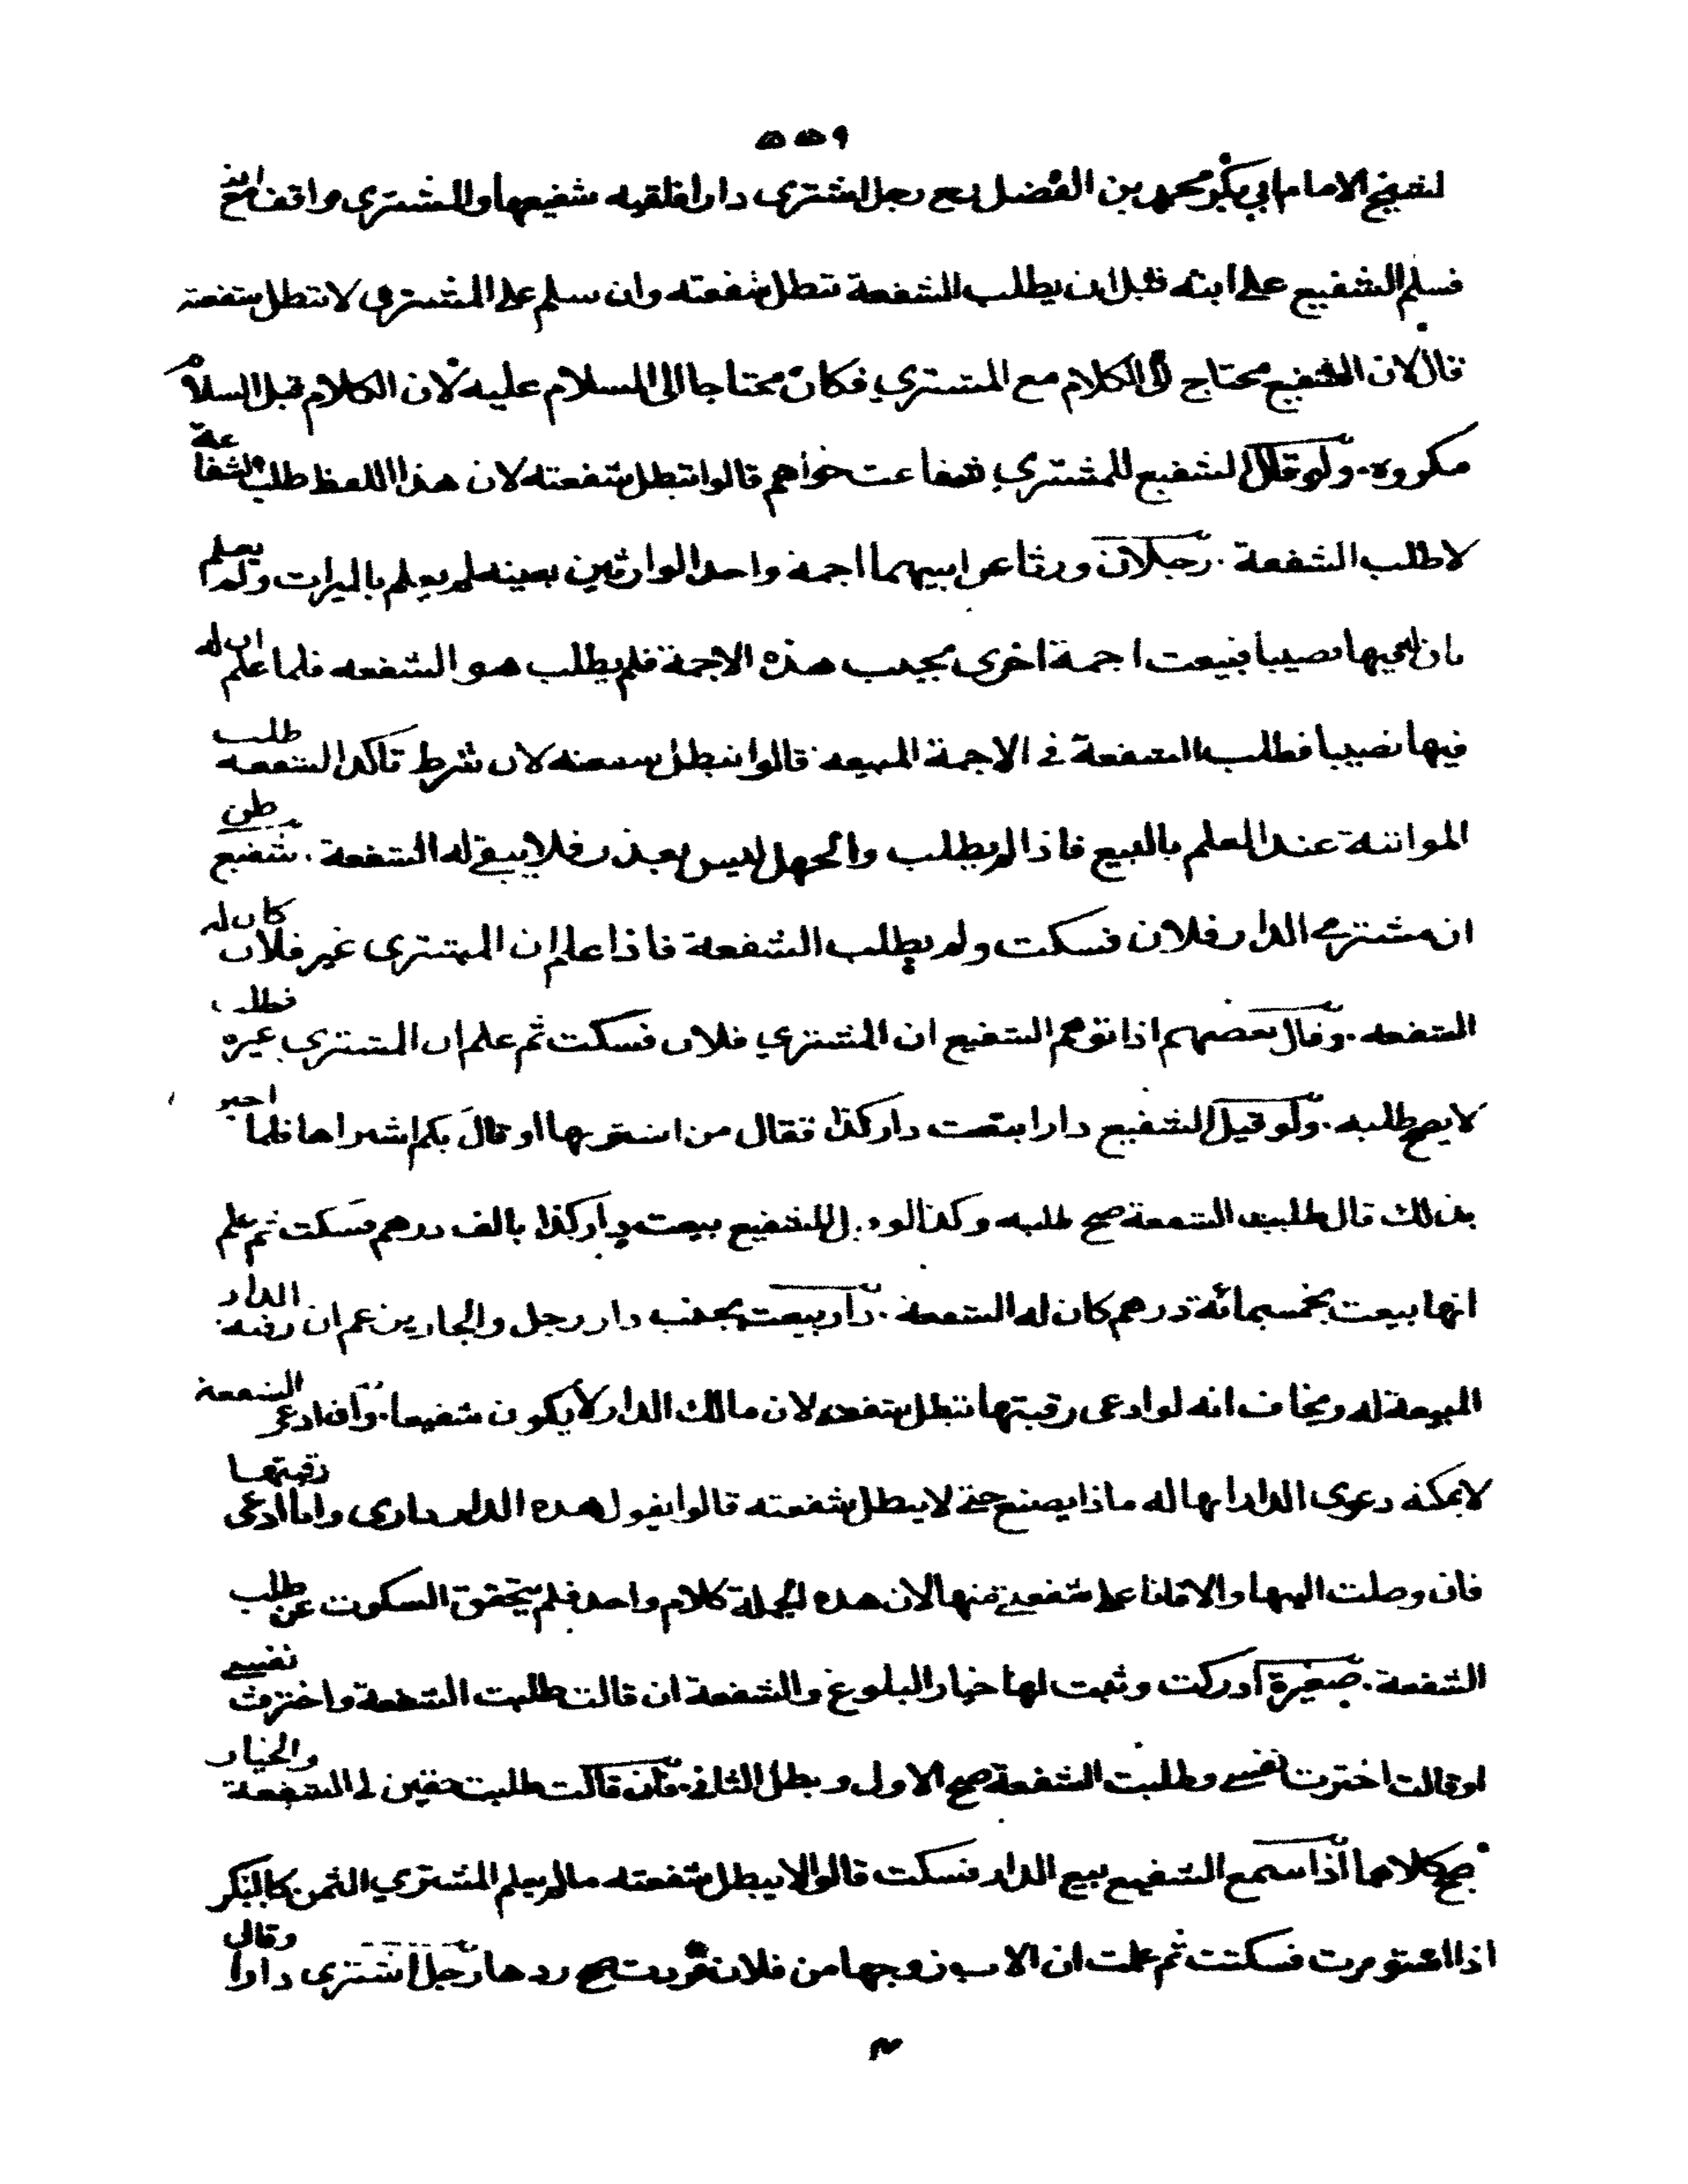 ٥٥٩
لشيخ الامام ابي بكر محمد بن الفضل رح رجل اشترى دارا فلقيه شفيعها والمشتري واقف مع ابنه
فسلم الشفيع على ابنه قبل ان يطلب الشفعة تبطل شفعته وان سلم على المشتري لا تبطل شفعته
قال لان الشفيع محتاج الى الكلام مع المشتري فكان محتاجا الى السلام عليه لان الكلام قبل السلام
مكروه. ولو قال الشفيع للمشتري شفاعت خواهم قالوا تبطل شفعته لان هذا اللفظ طلب الشفاعة
لا طلب الشفعة. رجلان ورثا عن ابيهما اجمة واحد الوارثين بعينه لم يعلم بالميراث ولم يعلم
بان فيها نصيبا فبيعت اجمة اخرى بجنب هذه الاجمة فلم يطلب هو الشفعه فلما علم ان له
فيها نصيبا فطلب الشفعة في الاجمة المبيعه قالوا تبطل شفعته لان شرط تاكد الشفعه
المواثبة عند العلم بالبيع فاذا لم يطلب والجهل ليس بعذر فلا يبقى له الشفعة. شفيع ظن
ان مشتري الدار فلان فسكت ولم يطلب الشفعة فاذا علم ان المشترى غير فلان كان له
الشفعه. وقال بعضهم اذا توهم الشفيع ان المشتري فلان فسكت ثم علم ان المشتري غيره فطلب
لا يصح طلبه. ولو قيل للشفيع دارا بيعت دار كذا فقال من اشتريها او قال بكم اشراها فلما اخبر
بذلك قال طلبت الشفعة صح طلبه وكذا لو قيل للشفيع بيعت دار كذا بالف درهم فسكت ثم علم
انها بيعت بخمسمائة درهم كان له الشفعة. دار بيعت بجنب دار رجل والجار يزعم ان رقبة الدار
المبيعة له ويخاف انه لو ادعى رقبتها تبطل شفعته لان مالك الدار لا يكون شفيعا. وان ادعى الشفعة
لا يمكنه دعوى الدار انها له ماذا يصنع حتى لا يبطل شفعته قالوا يقول هذه الدار داري وانا ادعى رقبتها
فان وصلت اليها والا فانا على شفعتي منها لان هذه الجملة كلام واحد فلم يتحقق السكوت عن طلب
الشفعة. صغيرة ادركت وثبت لها خيار البلوغ والشفعة ان قالت طلبت الشفعة واخترت نفسي
او قالت اخترت نفسي وطلبت الشفعة صح الاول وبطل الثاني. فان قالت طلبت حقين لي الشفعة والخيار
صح كلاهما اذا سمع الشفيع بيع الدار فسكت قالوا لا يبطل شفعته ما لم يعلم المشتري الثمن كالبكر
اذا استومرت فسكتت ثم علمت ان الاب زوجها من فلان فردت صح ردها رجل اشترى دارا وقال